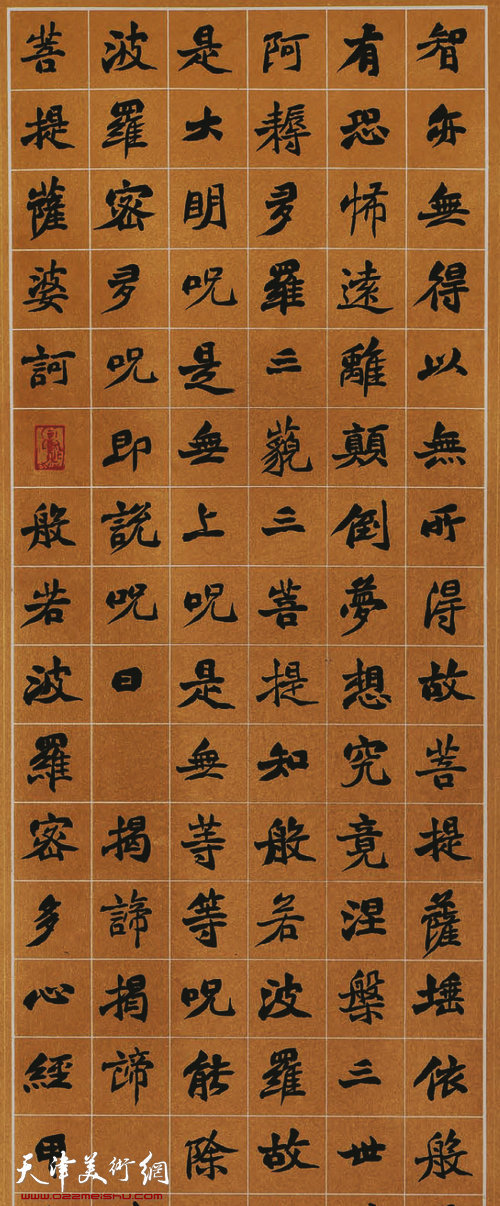 智亦無得以無所得故菩提薩埵依般
有恐怖遠離顛倒夢想究竟涅槃三世
阿耨多羅三藐三菩提知般若波羅故
是大明呪是無上呪是無等等呪能除
波羅密多呪即說呪曰 揭諦揭諦
菩提薩婆訶 般若波羅密多心經甲
天津美術網
www.022meishu.com